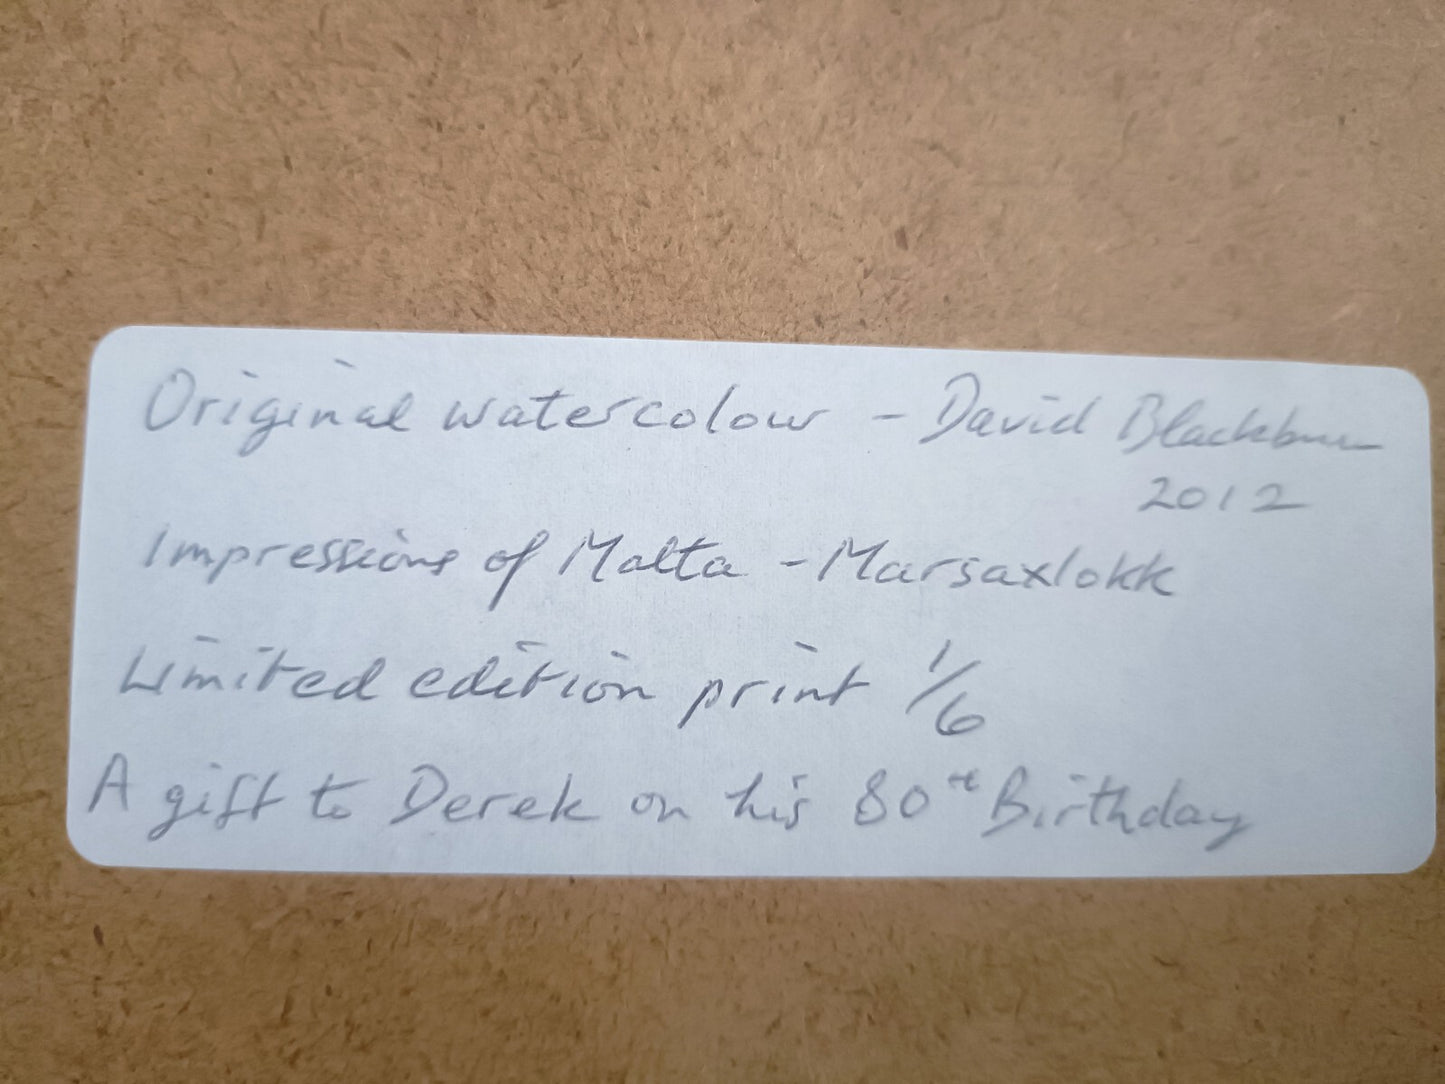 Original watercolour - David Blackburn
2012
Impressions of Malta - Marsaxlokk
Limited edition print 1/6
A gift to Derek on his 80th Birthday